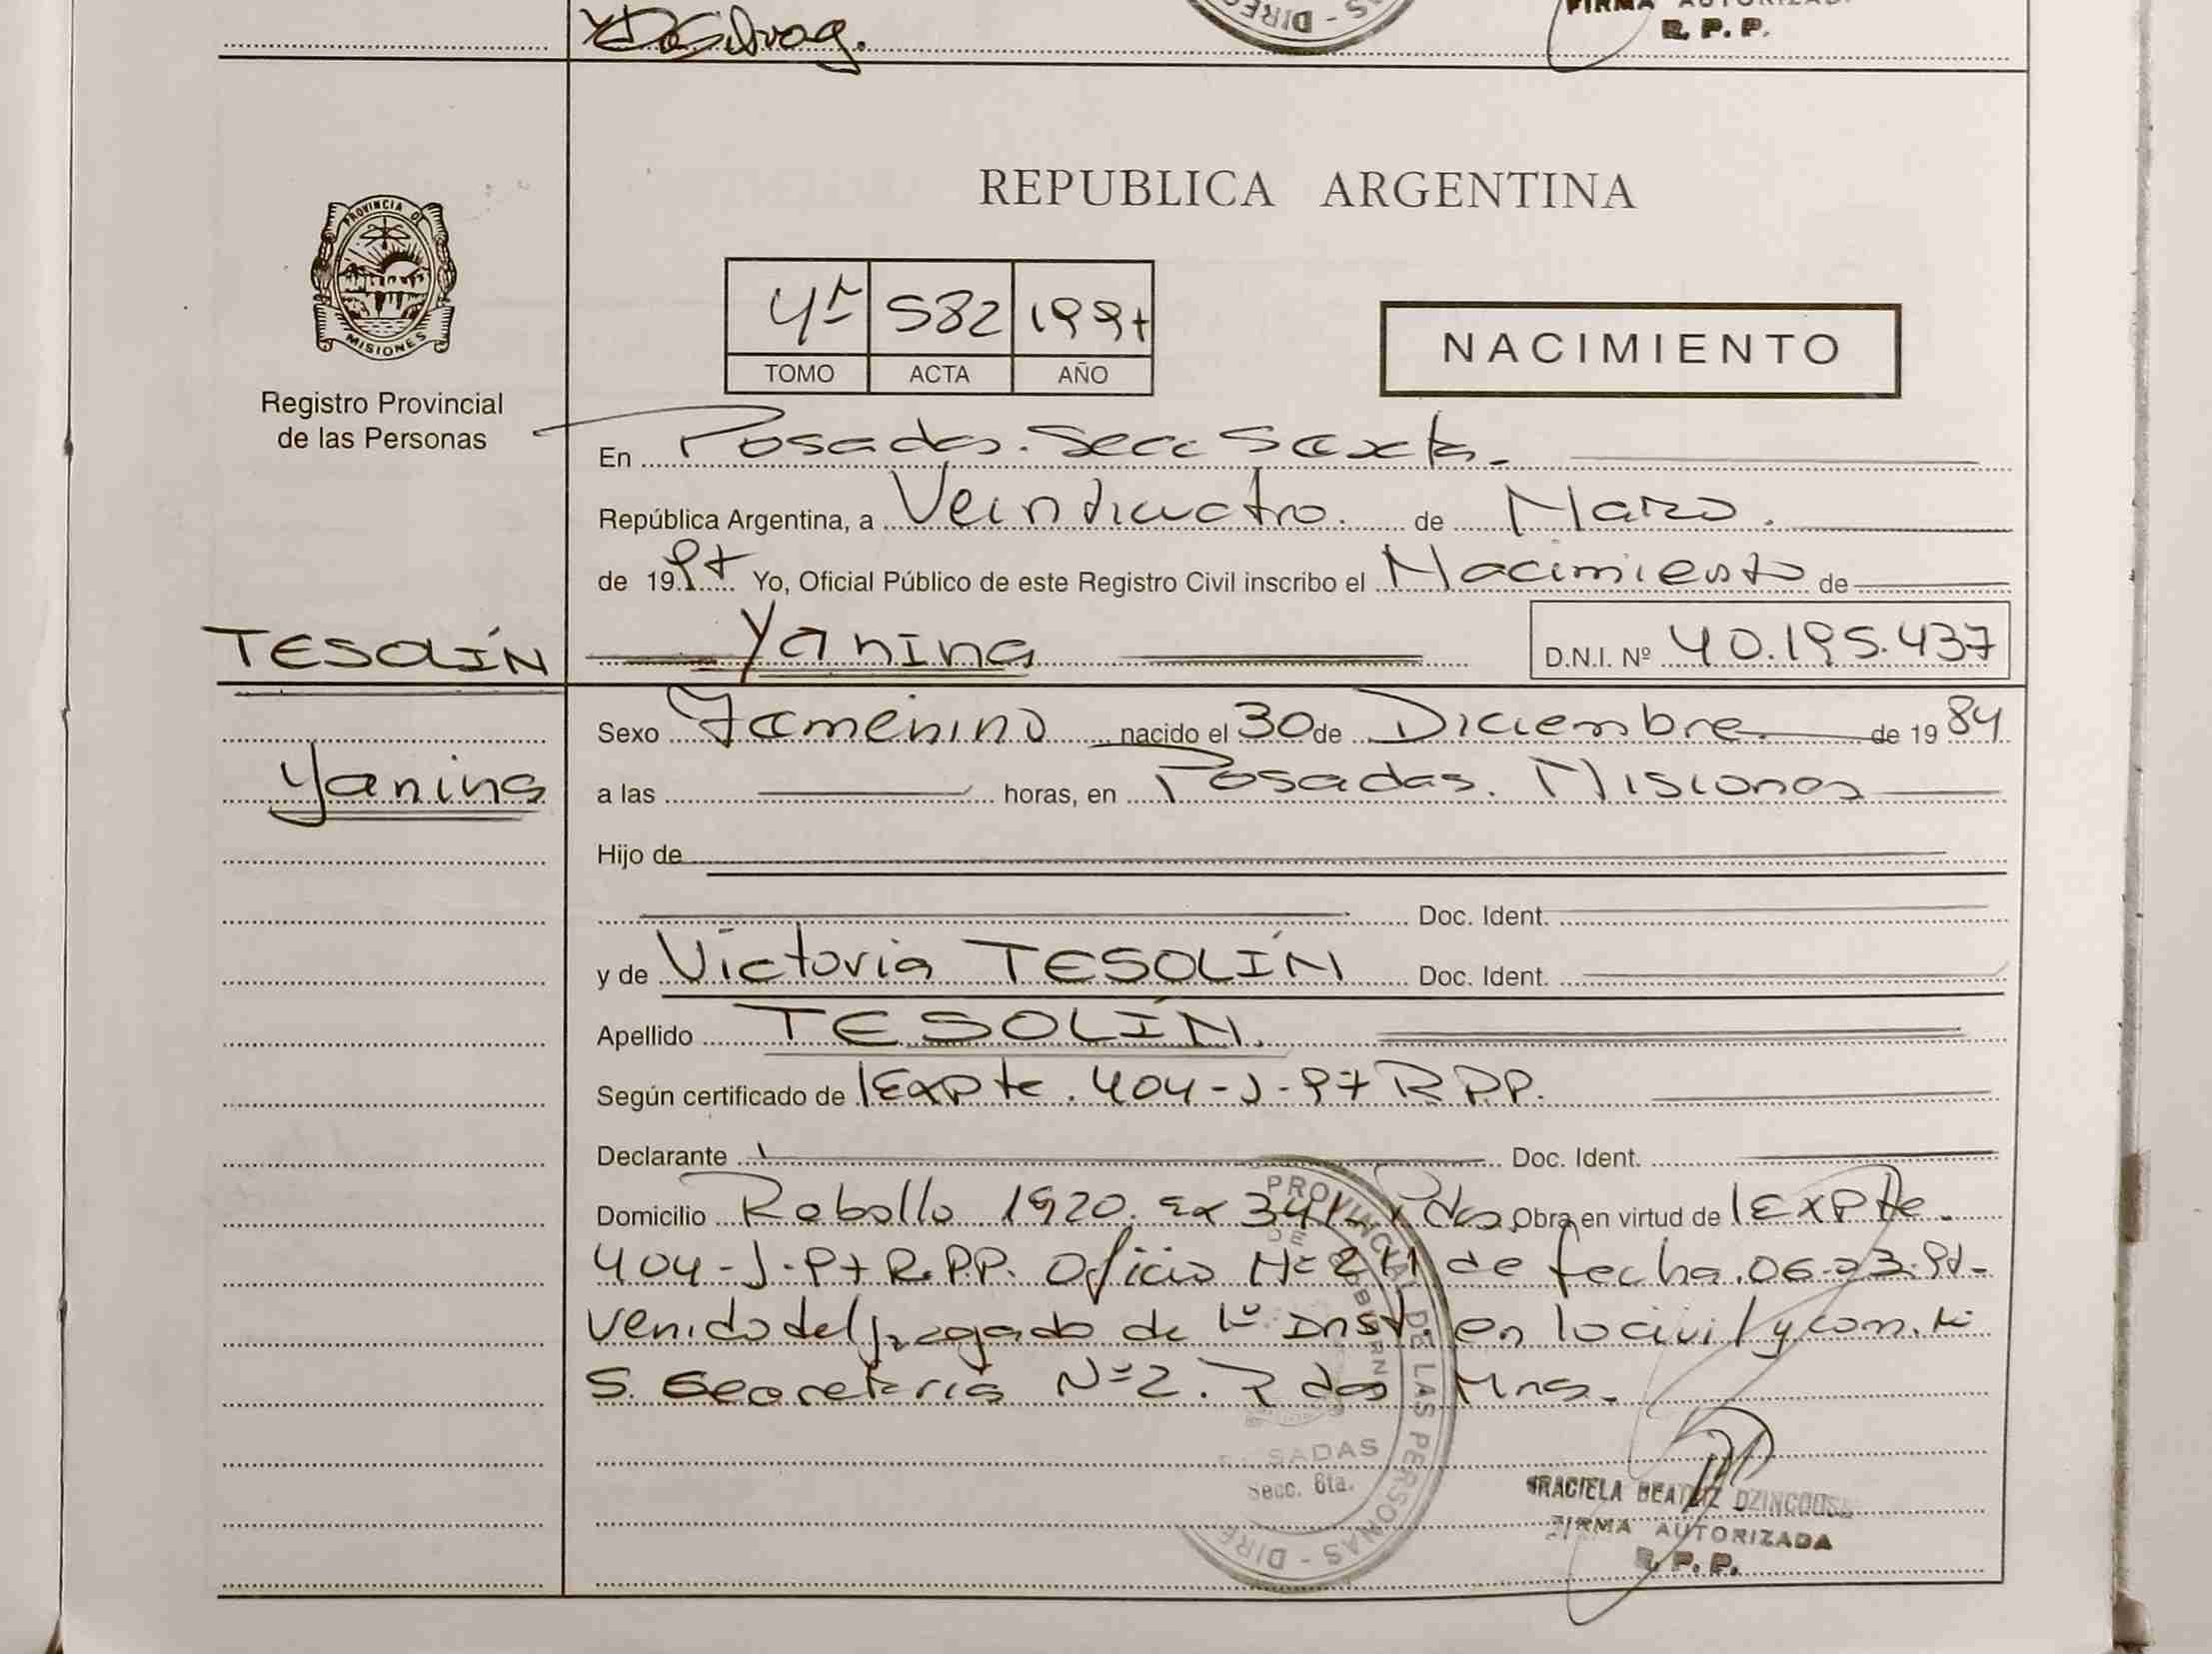 FIRMA AUTORIZADA
R. P. P.
PROVINCIA DE
MISIONES
Registro Provincial
de las Personas
REPUBLICA ARGENTINA
4º 582 1997
TOMO ACTA AÑO
NACIMIENTO
En Posadas. Secc Sexta.
República Argentina, a Veinticuatro. de Marzo.
de 1997 Yo, Oficial Público de este Registro Civil inscribo el Nacimiento de
TESOLÍN Yanina D.N.I. Nº 40.195.437
Sexo Femenino nacido el 30 de Diciembre de 1984
Yanina a las horas, en Posadas. Misiones
Hijo de
Doc. Ident.
y de Victoria TESOLÍN Doc. Ident.
Apellido TESOLÍN.
Según certificado de Expte. 404-J-97 R.P.P.
Declarante Doc. Ident.
Domicilio Rebollo 1920. ex 341 Pdas Obra en virtud de Expte.
404-J-97 R.P.P. Oficio Nº 241 de fecha 06-03-97-
venido del juzgado de 1º Inst. en lo civil y com. Nº
5. Secretaria Nº 2. Pdas Mns.
PROVINCIAL DE LAS PERSONAS - DIRE
POSADAS
Secc. 6ta.
GRACIELA BEATRIZ
FIRMA AUTORIZADA
R. P. P.